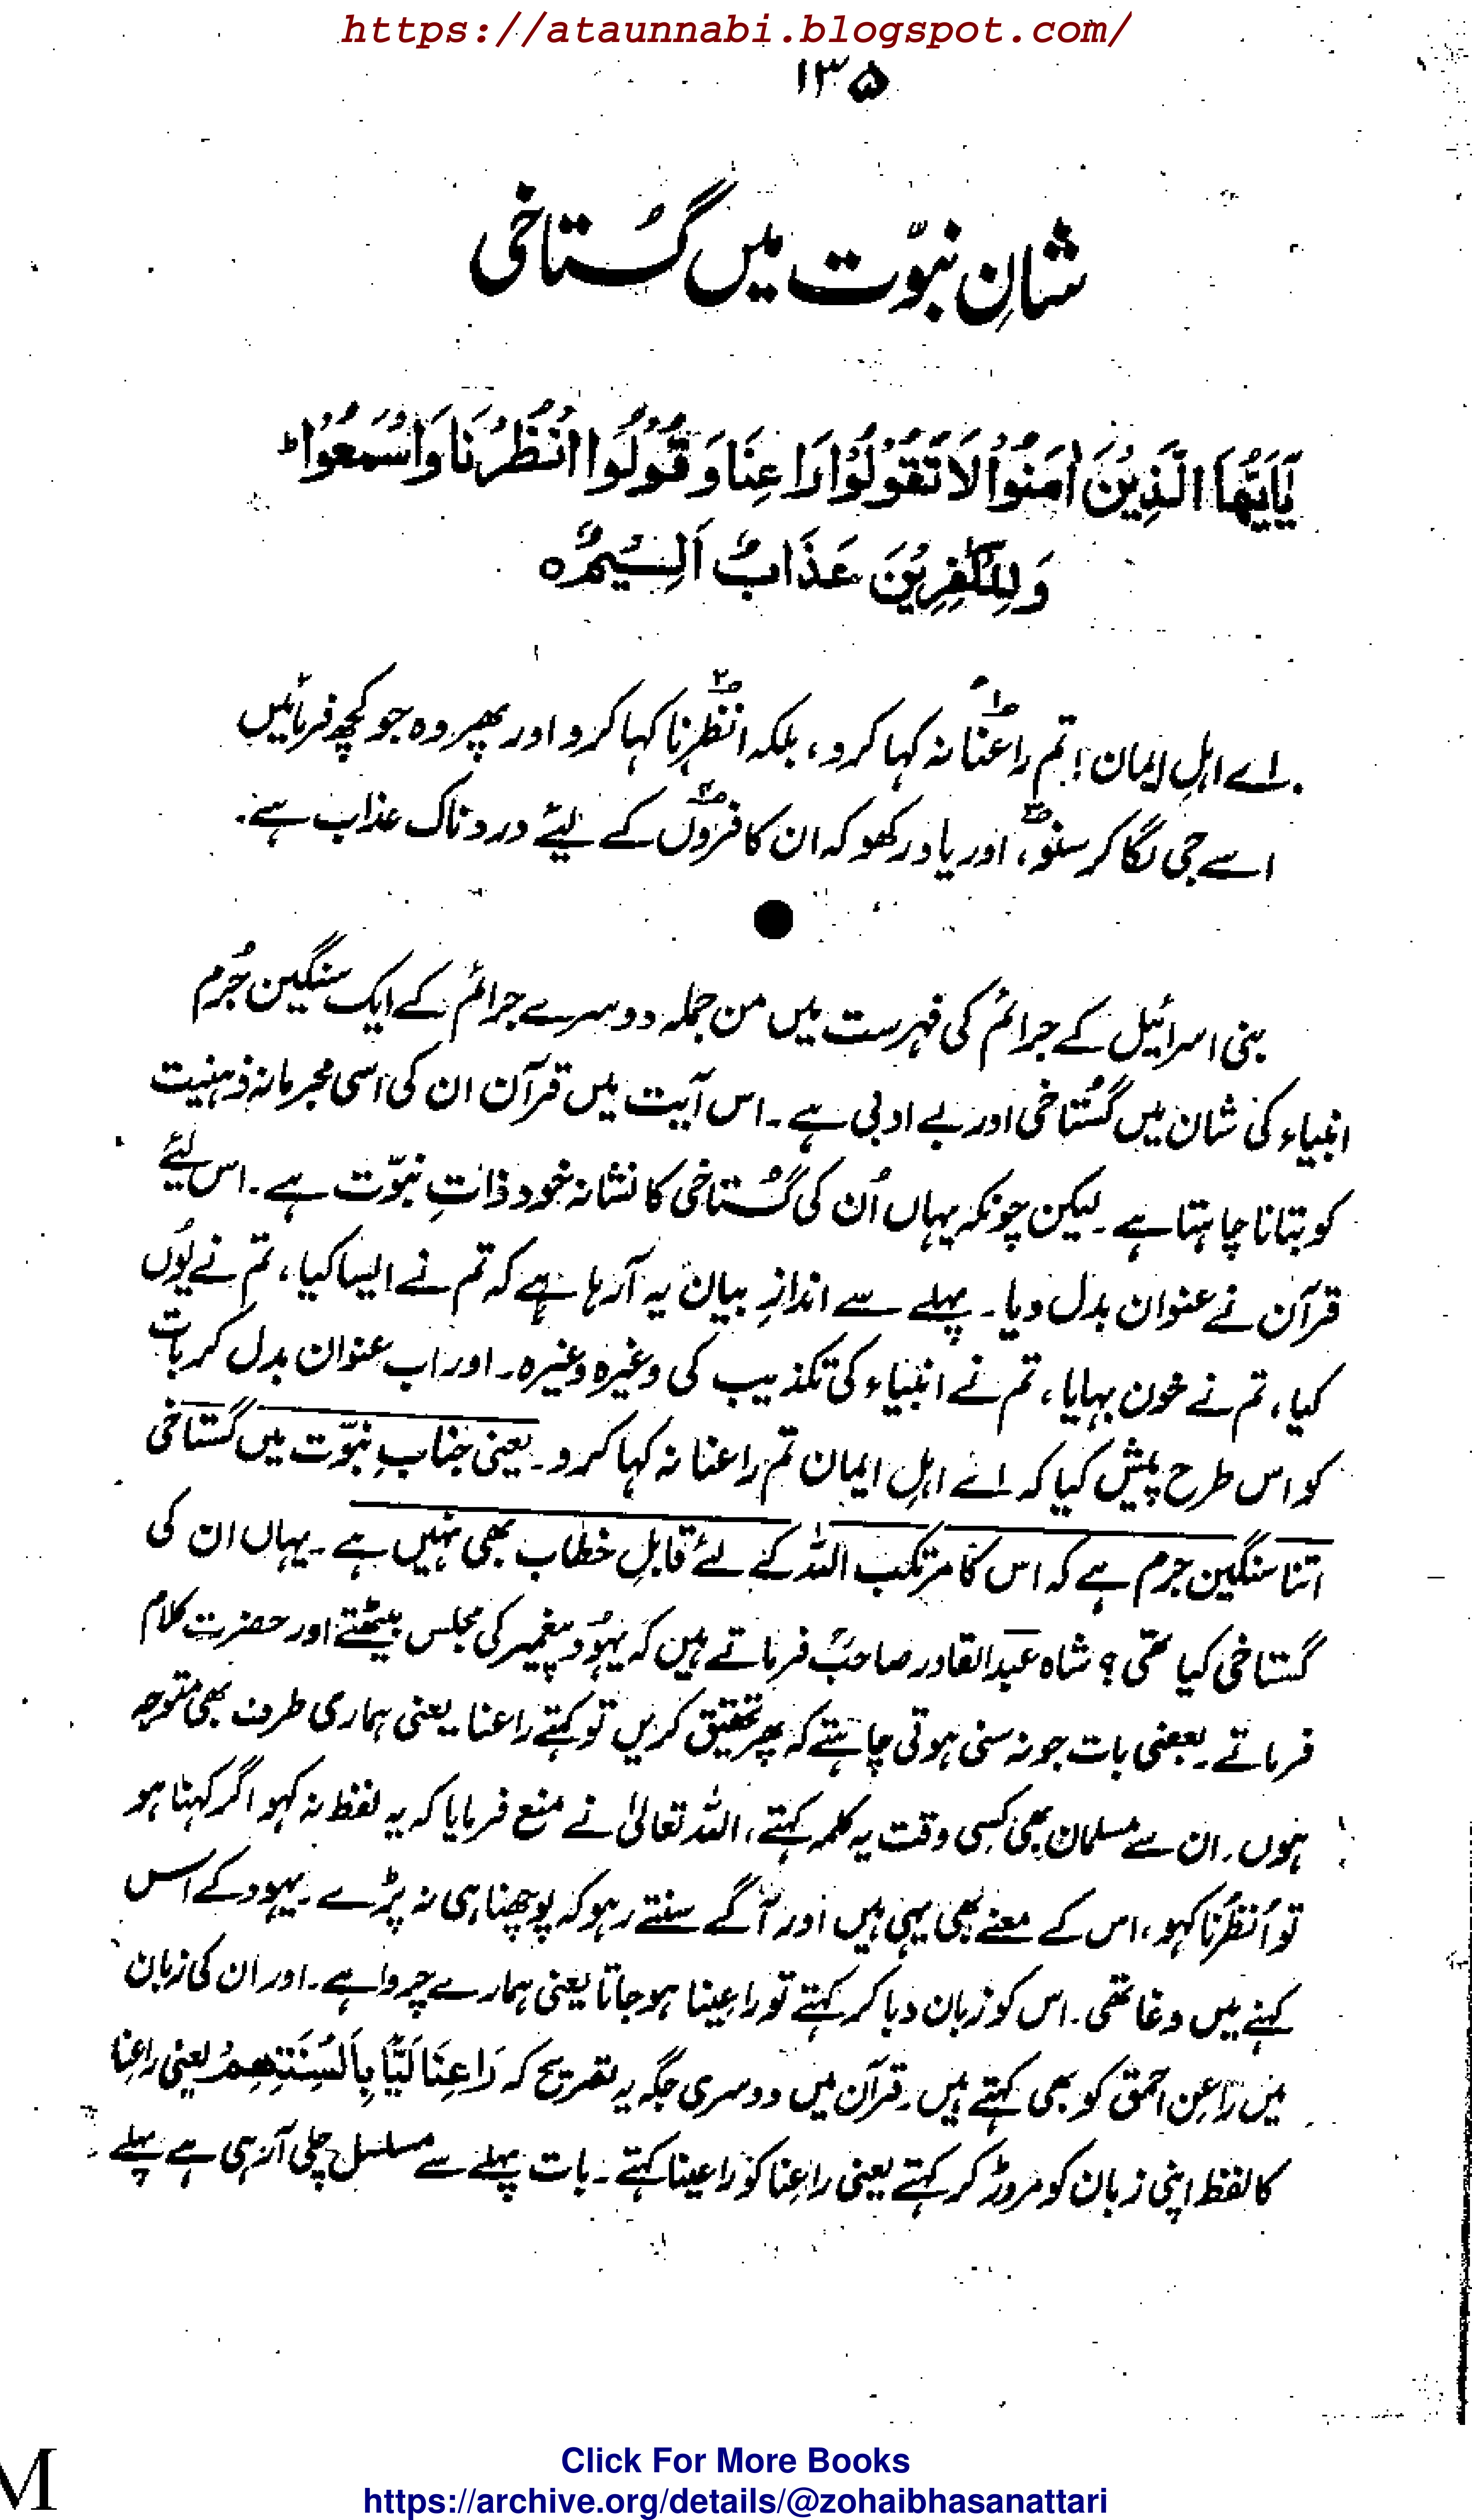 https://ataunnabi.blogspot.com/
۱۳۵
شانِ نبوّت میں گُستاخی
یٰۤاَیُّهَا الَّذِیْنَ اٰمَنُوْا لَا تَقُوْلُوْا رَاعِنَا وَ قُوْلُوا انْظُرْنَا وَاسْمَعُوْاؕ
وَ لِلْكٰفِرِیْنَ عَذَابٌ اَلِیْمٌ ہ
اے اہلِ ایمان! تم راعنا ۱ نہ کہا کرو، بلکہ انظرنا ۲ کہا کرو اور پھر وہ جو کچھ فرمائیں
اسے جی لگا کر سنو ۳، اور یاد رکھو کہ ان کافروں ۴ کے لیئے دردناک عذاب ہے.
●
بنی اسرائیل کے جرائم کی فہرست میں من جملہ دوسرے جرائم کے ایک سنگین جُرم
انبیاء کی شان میں گُستاخی اور بے ادبی ہے۔ اس آیت میں قرآن ان کی اسی مجرمانہ ذہنیت
کو بتانا چاہتا ہے۔ لیکن چونکہ یہاں اُن کی گُستاخی کا نشانہ خود ذاتِ نبوّت ہے۔ اس لیئے
قرآن نے عنوان بدل دیا۔ پہلے سے اندازِ بیان یہ آرہا ہے کہ تم نے ایسا کیا، تم نے یُوں
کیا، تم نے خون بہایا، تم نے انبیاء کی تکذیب کی وغیرہ وغیرہ۔ اور اب عنوان بدل کر بات
کو اس طرح پیش کیا کہ اے اہلِ ایمان تم راعنا نہ کہا کرو۔ یعنی جنابِ نبوّت میں گستاخی
اتنا سنگین جرم ہے کہ اس کا مرتکب اللہ کے لئے قابلِ خطاب بھی نہیں ہے۔ یہاں ان کی
گستاخی کیا تھی؟ شاہ عبدالقادر صاحبؒ فرماتے ہیں کہ یہُود پیغمبر کی مجلس بیٹھتے اور حضرت کلام
فرماتے۔ بعضی بات جو نہ سنی ہوتی چاہتے کہ پھر تحقیق کریں تو کہتے راعنا۔ یعنی ہماری طرف بھی متوجہ
ہوں۔ ان سے مسلمان بھی کسی وقت یہ کلمہ کہتے، اللہ تعالیٰ نے منع فرمایا کہ یہ لفظ نہ کہو اگر کہنا ہو
تو اُنظُرنَا کہو، اس کے معنے بھی یہی ہیں اور آگے سنتے رہو کہ پوچھنا ہی نہ پڑے۔ یہود کے اس
کہنے میں دغا تھی۔ اس کو زبان دبا کر کہتے تو راعِینا ہوجاتا یعنی ہمارے چرواہے۔ اور ان کی زبان
میں راعِن احمق کو بھی کہتے ہیں۔ قرآن میں دوسری جگہ یہ تصریح کہ رَاعِنَا لَیًّا بِاَلْسِنَتِهِمْ یعنی راعِنا
کا لفظ اپنی زبان کو مروڑ کر کہتے یعنی راعِنا کو راعینا کہتے۔ بات پہلے سے مسلسل چلی آرہی ہے پہلے
M
Click For More Books
https://archive.org/details/@zohaibhasanattari